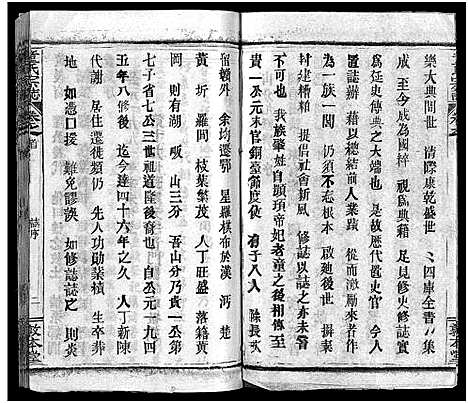 樂大典問世 清際康乾盛世 四庫全書 集
成 于今成為國粹 視為典籍 足見修史修誌
為延史傳典之大成 是故歷代置史 大典
為一族一閣 仍須不忘根本 啟廸後世 撰纂
辦誌 藉以總結前人業蹟 從而激勵來者
封建糟粕 提倡社會新風 修誌以誌之亦未嘗
不可也 我族肇姓自顓頊帝妃老童之後相傳至
貴一公元末官銅臺節度使 育子八人 除長
宿贛外 余均遷鄂 星羅棋布於漢 沔 楚
黃 圻 羅閭 枝葉繁茂 人丁旺盛 落籍黃
岡 有湖 啵 山三分 吾山分乃貴一公 第
七子省七公三世祖道隆後裔也 自公元一九四
五年八修後 迄今達四十六年之久 人丁新陳
代謝 居住遷徙頻仍 先人功勛業積 生卒葬
地 如憑口援 難免謬誤 如修誌誌之 則炎
童氏宗誌
卷首
誌序
二
敦本堂